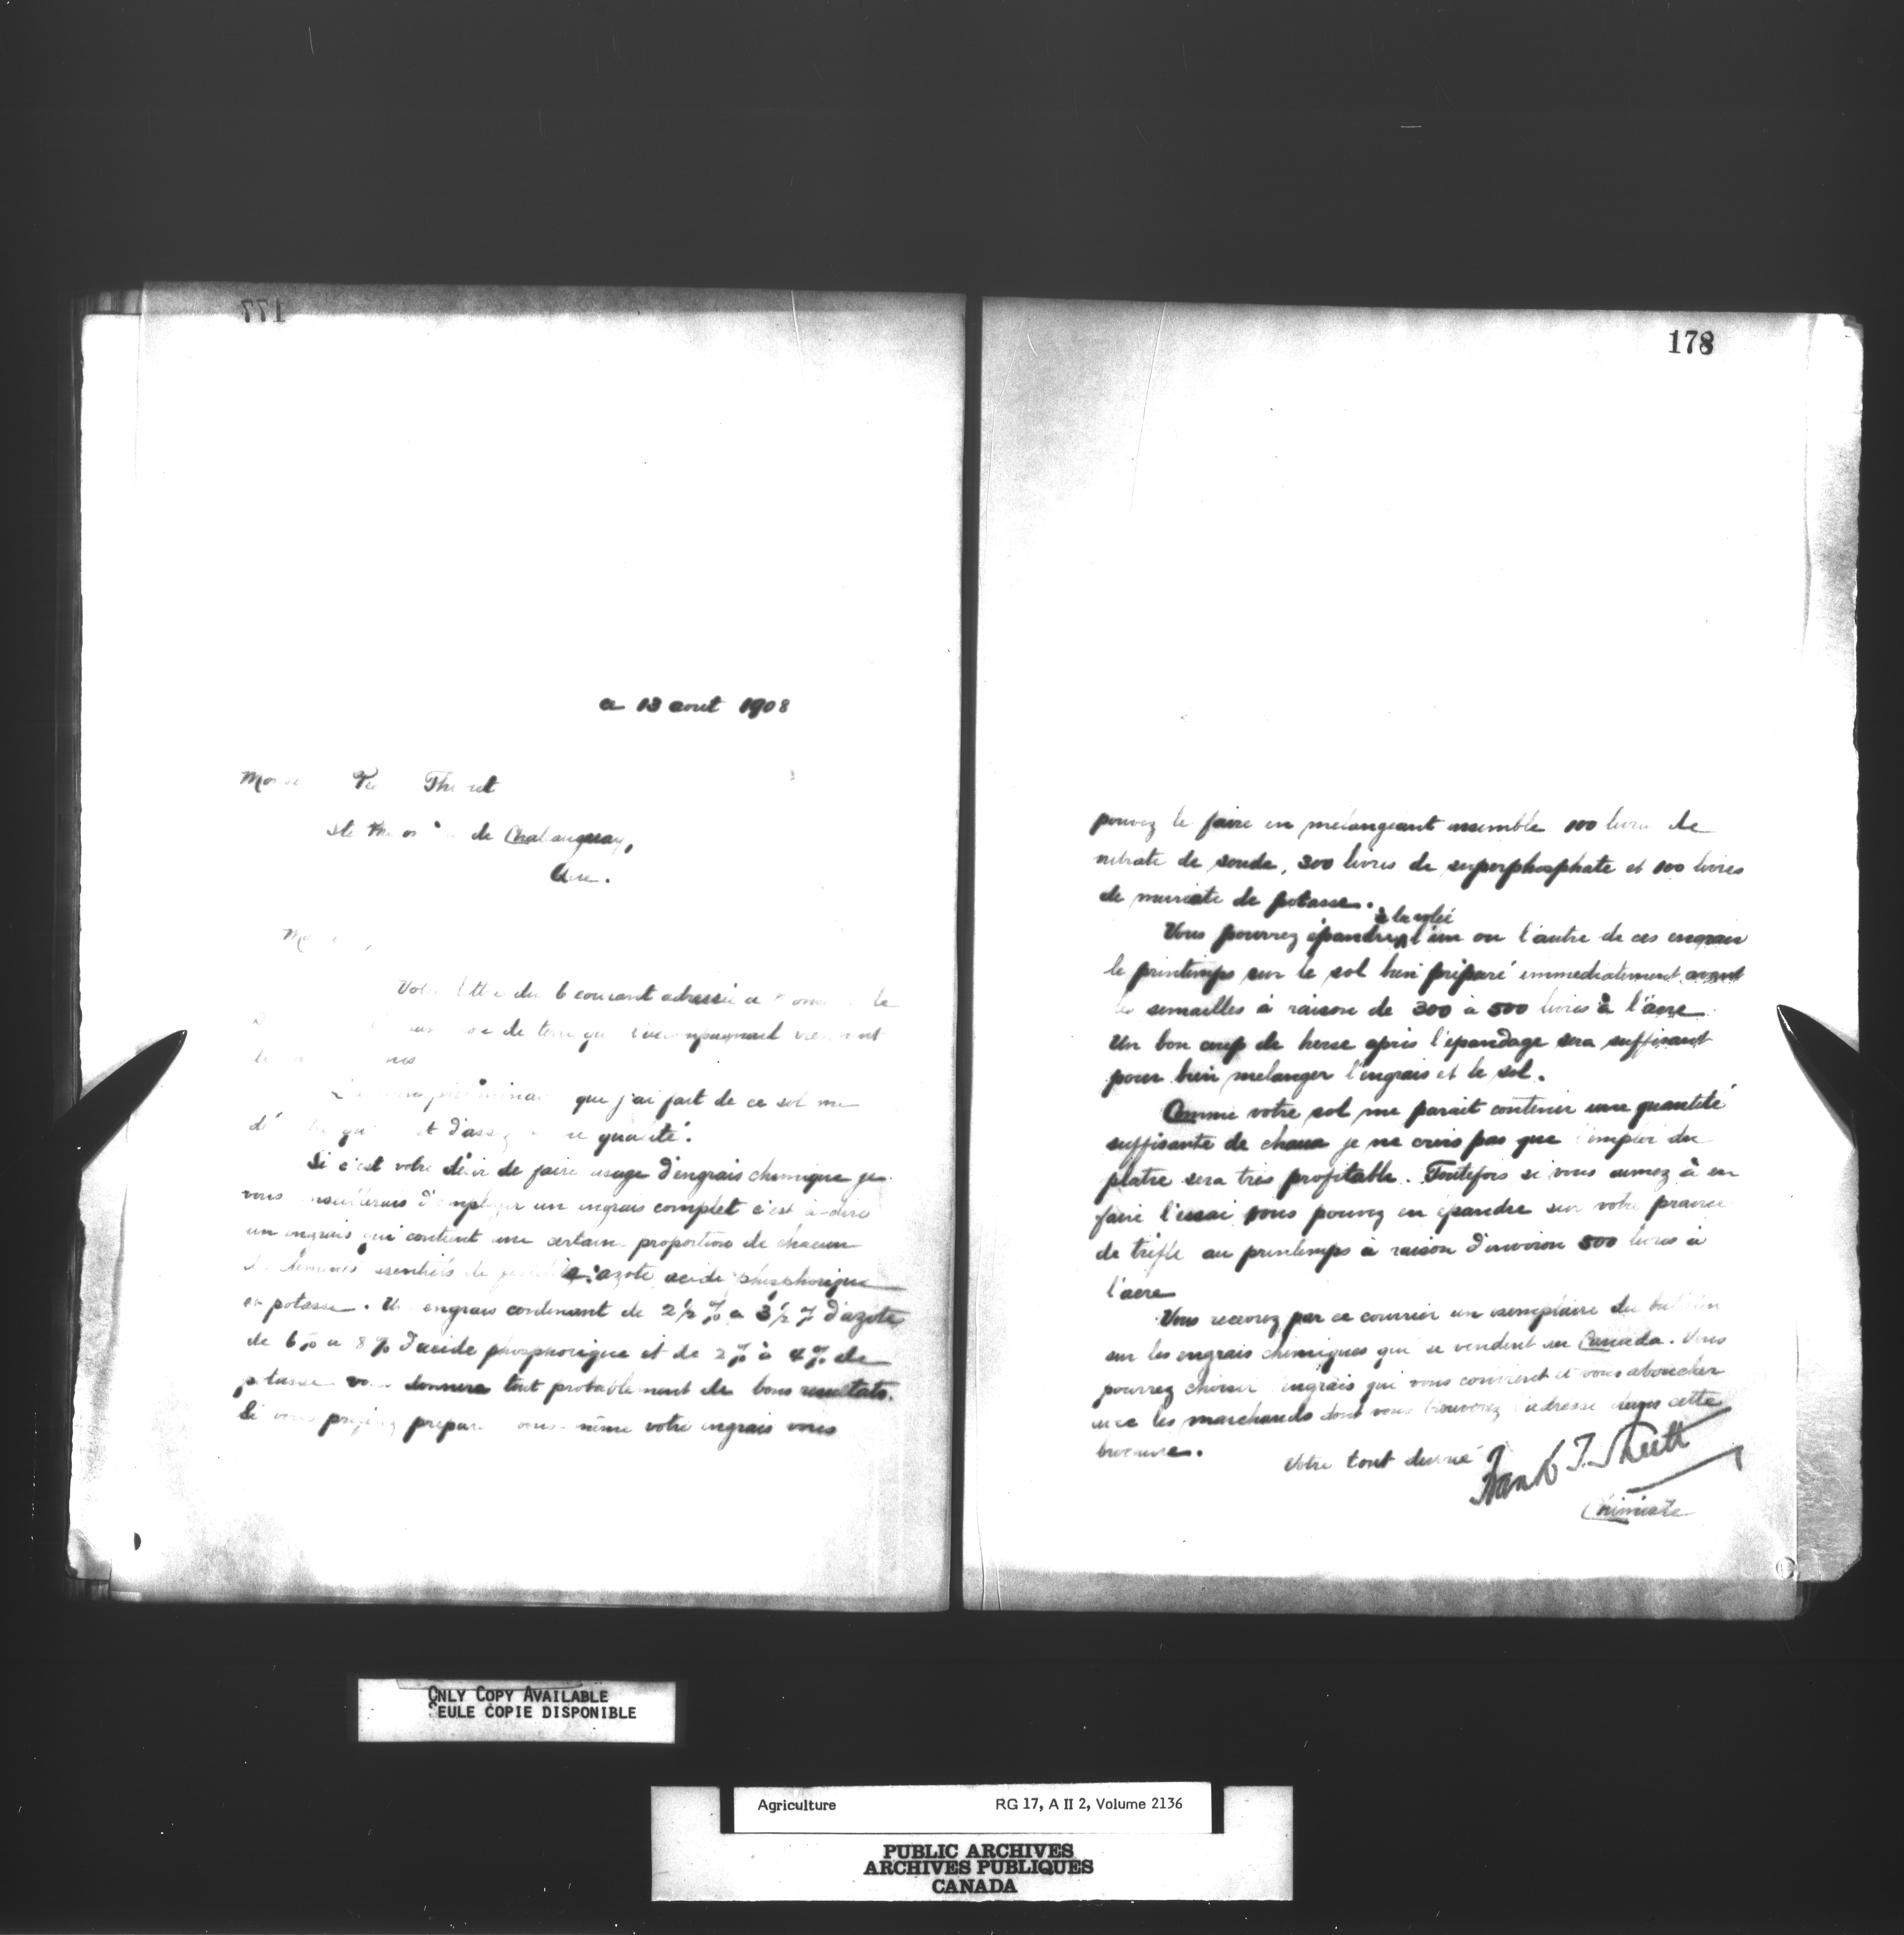 177
ce 13 aout 1908
de Chateauguay,
Que.
du 6 courant adressée a le
de terre qui l'accompagnait
que j'ai fait de ce sol me
qualité.
Si c'est votre désir de faire usage d'engrais chimique je
vous conseillerais d'employer un engrais complet c'est à-dire
un engrais qui contient une certaine proportion de chacun
essentiels de azote acide phosphorique
et potasse. Un engrais contenant de 2½ % a 3½ % d'azote
de 6% a 8% d'acide phosphorique et de 2% à 4% de
potasse vous donnera tout probablement de bons resultats.
Si vous préférez préparer vous-même votre engrais vous
178
pouvez le faire en melangeant ensemble 100 livres de
nitrate de soude, 300 livres de superphosphate et 100 livres
de muriate de potasse.
à la volée
Vous pourrez épandre l'un ou l'autre de ces engrais
le printemps sur le sol bien préparé immediatement avant
les semailles à raison de 300 à 500 livres à l'acre.
Un bon coup de herse après l'épandage sera suffisant
pour bien melanger l'engrais et le sol.
Comme votre sol me parait contenir une quantité
suffisante de chaux je ne crois pas que l'emploi du
platre sera très profitable. Toutefois si vous aimez à en
faire l'essai vous pouvez en épandre sur votre prairie
de trèfle au printemps à raison d'environ 500 livres à
l'acre
Vous recevrez par ce courrier un exemplaire du bulletin
sur les engrais chimiques qui se vendent au Canada. Vous
pourrez choisir l'engrais qui vous convient et vous aboucher
avec les marchands dont vous trouverez l'adresse dans cette
brochure.
Votre tout dévoué
Frank T. Shutt
Chimiste
ONLY COPY AVAILABLE
SEULE COPIE DISPONIBLE
Agriculture RG 17, A II 2, Volume 2136
PUBLIC ARCHIVES
ARCHIVES PUBLIQUES
CANADA